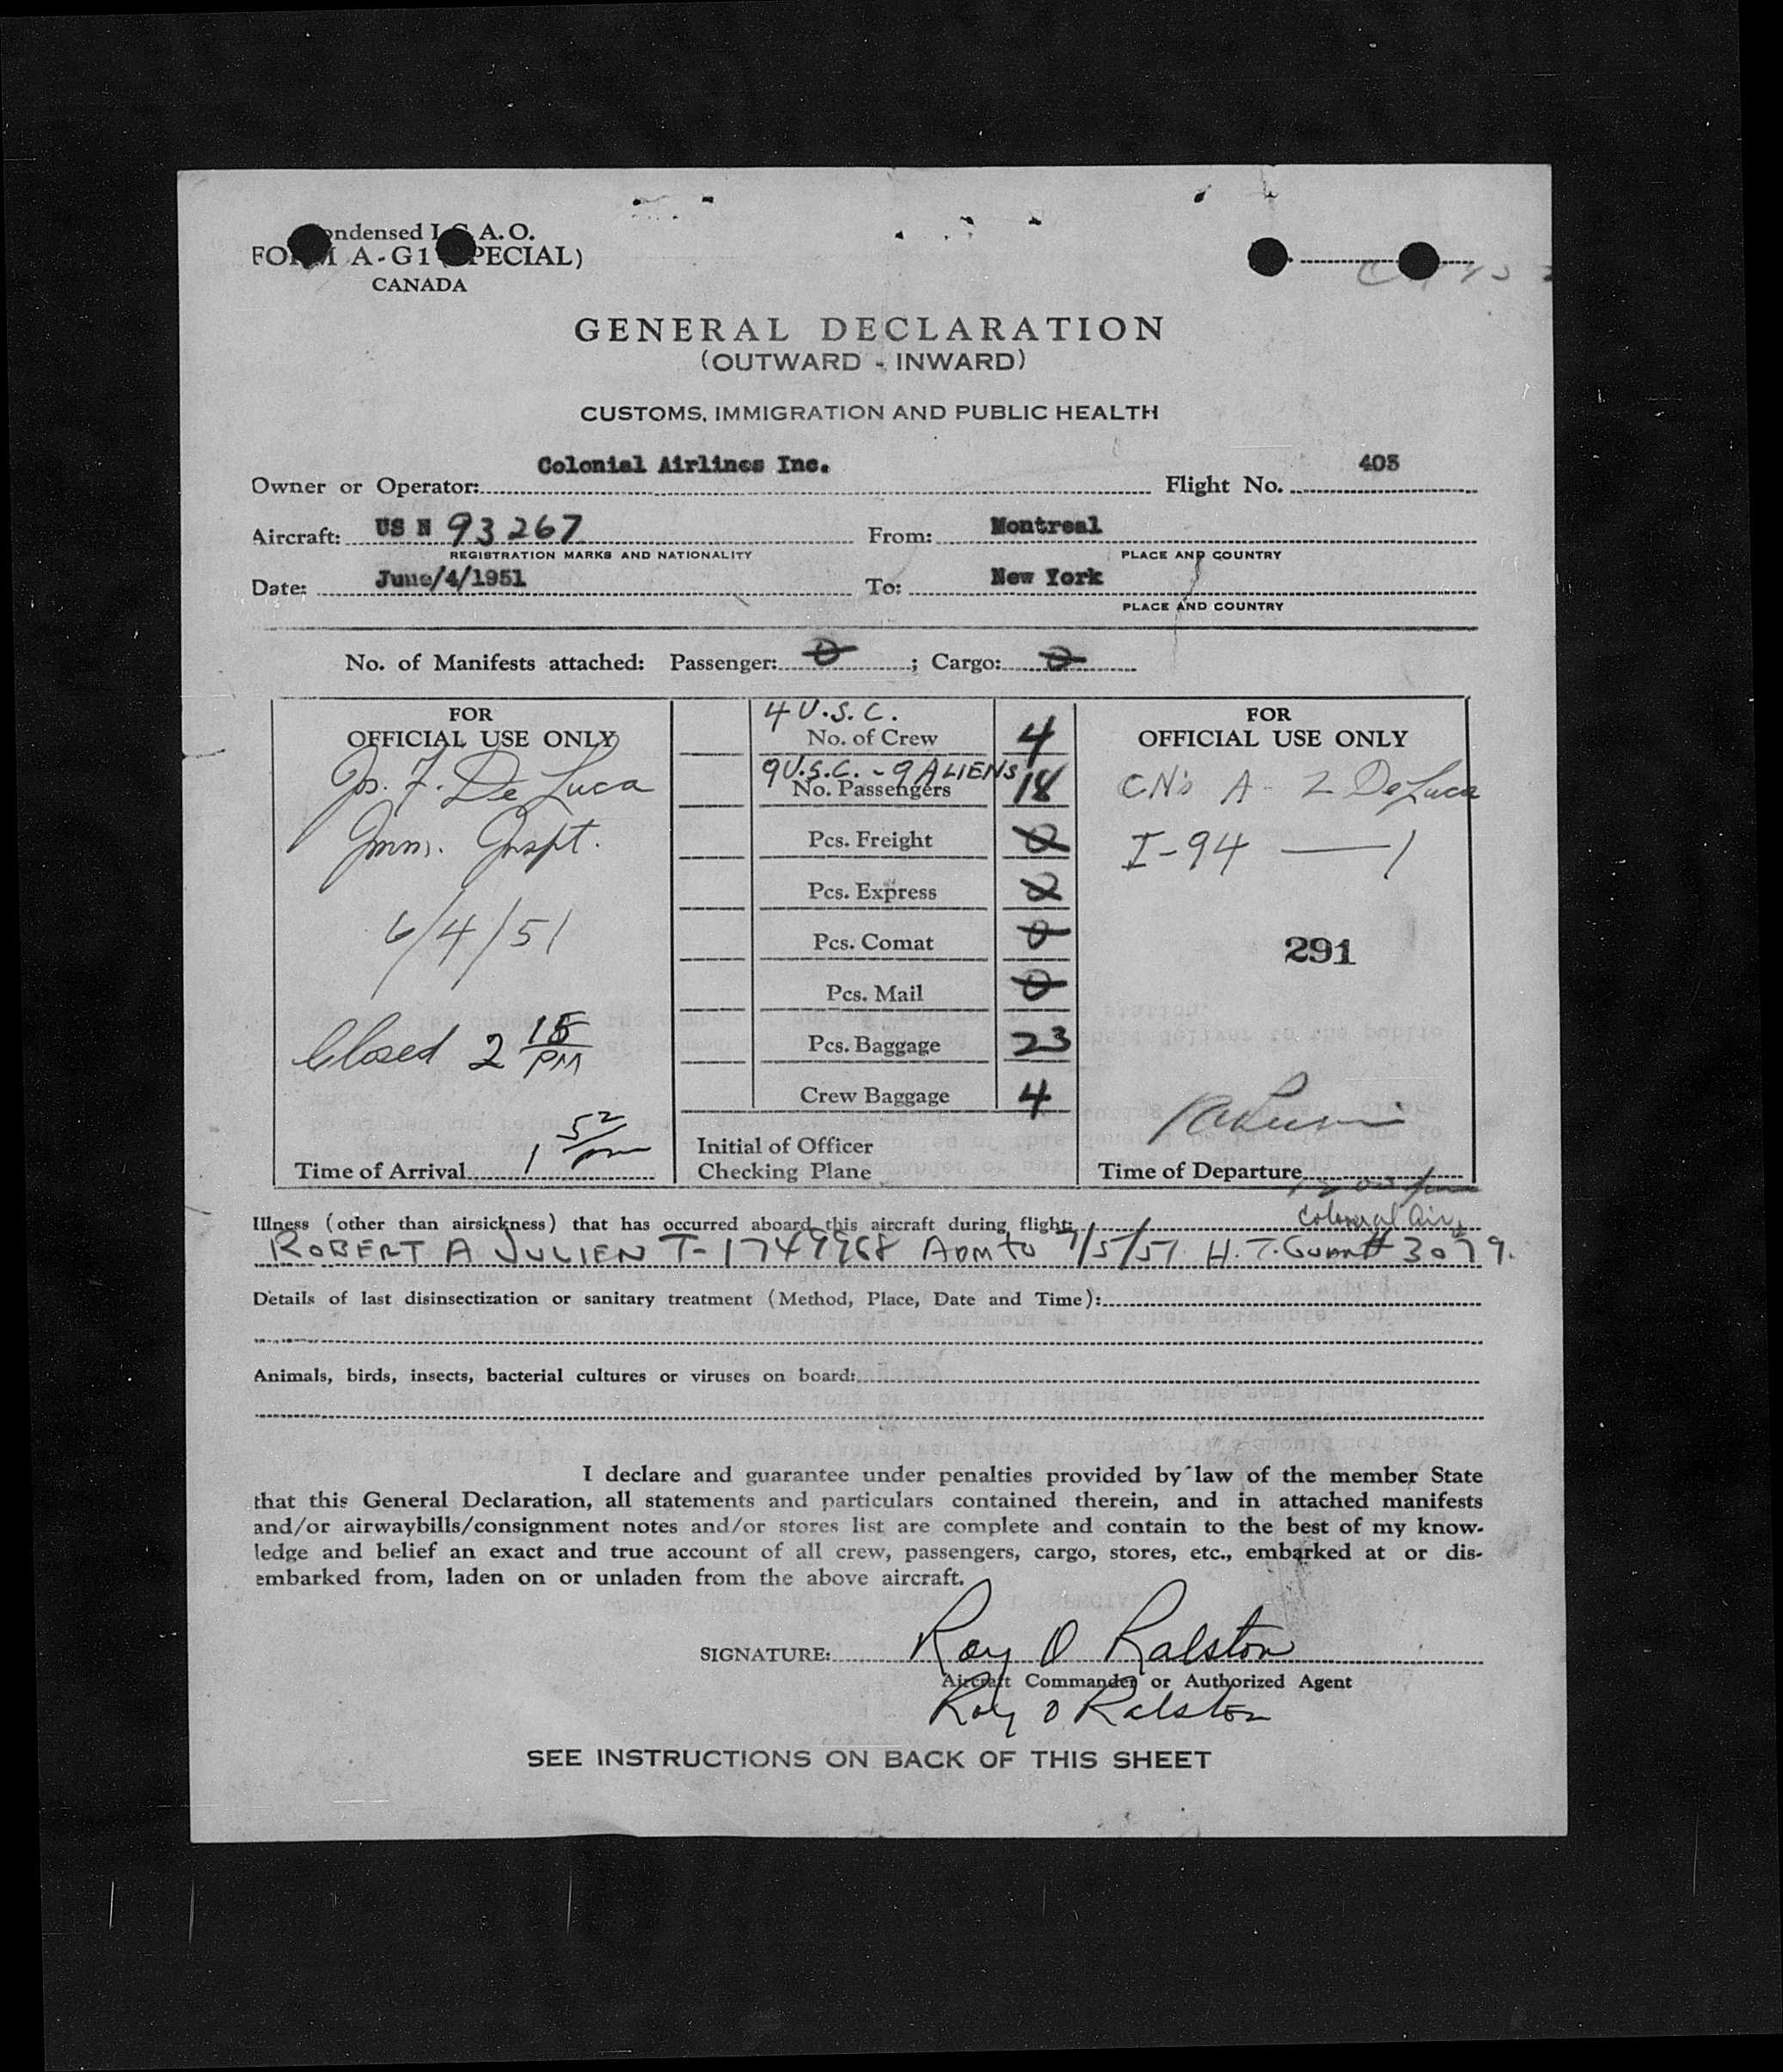 Condensed I.C.A.O.
FORM A-G1 (SPECIAL)
CANADA
GENERAL DECLARATION
(OUTWARD - INWARD)
CUSTOMS, IMMIGRATION AND PUBLIC HEALTH
Owner or Operator: Colonial Airlines Inc. Flight No. 403
Aircraft: US N 93267 From: Montreal
REGISTRATION MARKS AND NATIONALITY PLACE AND COUNTRY
Date: June/4/1951 To: New York
PLACE AND COUNTRY
No. of Manifests attached: Passenger: 0 ; Cargo: 0
FOR
OFFICIAL USE ONLY
Jos. F. De Luca
Imm. Inspt.
6/4/51
Closed 2 18 PM
Time of Arrival 1 52 pm
4 U.S.C.
No. of Crew 4
9 U.S.C. - 9 ALIENS
No. Passengers 18
Pcs. Freight 0
Pcs. Express 0
Pcs. Comat 0
Pcs. Mail 0
Pcs. Baggage 23
Crew Baggage 4
Initial of Officer
Checking Plane
FOR
OFFICIAL USE ONLY
CN's A - 2 DeLuca
I-94 — 1
291
Time of Departure
Illness (other than airsickness) that has occurred aboard this aircraft during flight:
Colonial Air
ROBERT A JULIEN T-1749968 ADM to 7/5/51 H. T. # 3079.
Details of last disinsectization or sanitary treatment (Method, Place, Date and Time):
Animals, birds, insects, bacterial cultures or viruses on board:
I declare and guarantee under penalties provided by law of the member State
that this General Declaration, all statements and particulars contained therein, and in attached manifests
and/or airwaybills/consignment notes and/or stores list are complete and contain to the best of my know-
ledge and belief an exact and true account of all crew, passengers, cargo, stores, etc., embarked at or dis-
embarked from, laden on or unladen from the above aircraft.
SIGNATURE: Roy O Ralston
Aircraft Commander or Authorized Agent
Roy O Ralston
SEE INSTRUCTIONS ON BACK OF THIS SHEET